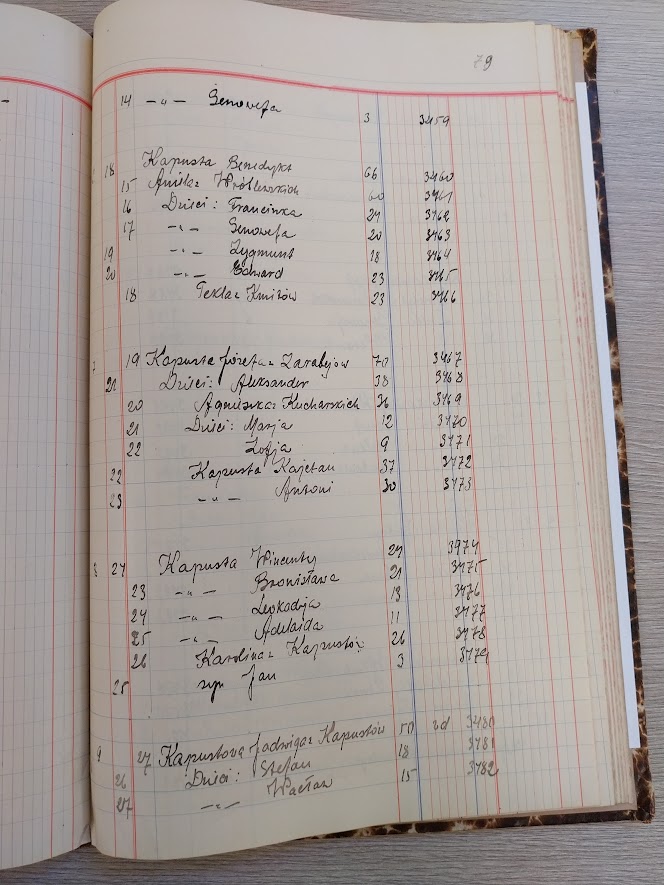 79
14 — „ — Genowefa 3 3459
18 Kapusta Benedykt 66 3460
15 Amilaz Wróblewskich 60 3461
16 Dzieci: Franciszka 24 3462
17 — „ — Genowefa 20 3463
19 — „ — Zygmunt 18 3464
20 — „ — Edward 23 3465
18 Tekla z Kmitów 23 3466
7 19 Kapusta Józefa z Zarębów 70 3467
21 Dzieci: Aleksander 38 3468
20 Agnieszka z Kucharskich 36 3469
21 Dzieci: Marja 12 3470
22 Zofja 9 3471
22 Kapusta Kajetan 37 3472
23 — „ — Antoni 30 3473
8 24 Kapusta Wincenty 24 3474
23 — „ — Bronisława 21 3475
24 — „ — Leokadja 13 3476
25 — „ — Adelaida 11 3477
26 Karolina z Kapustów 26 3478
25 syn Jan 3 3479
9 27 Kapustowa Jadwiga z Kapustów 50 3480
26 Dzieci: Stefan 18 3481
27 — „ — Wacław 15 3482